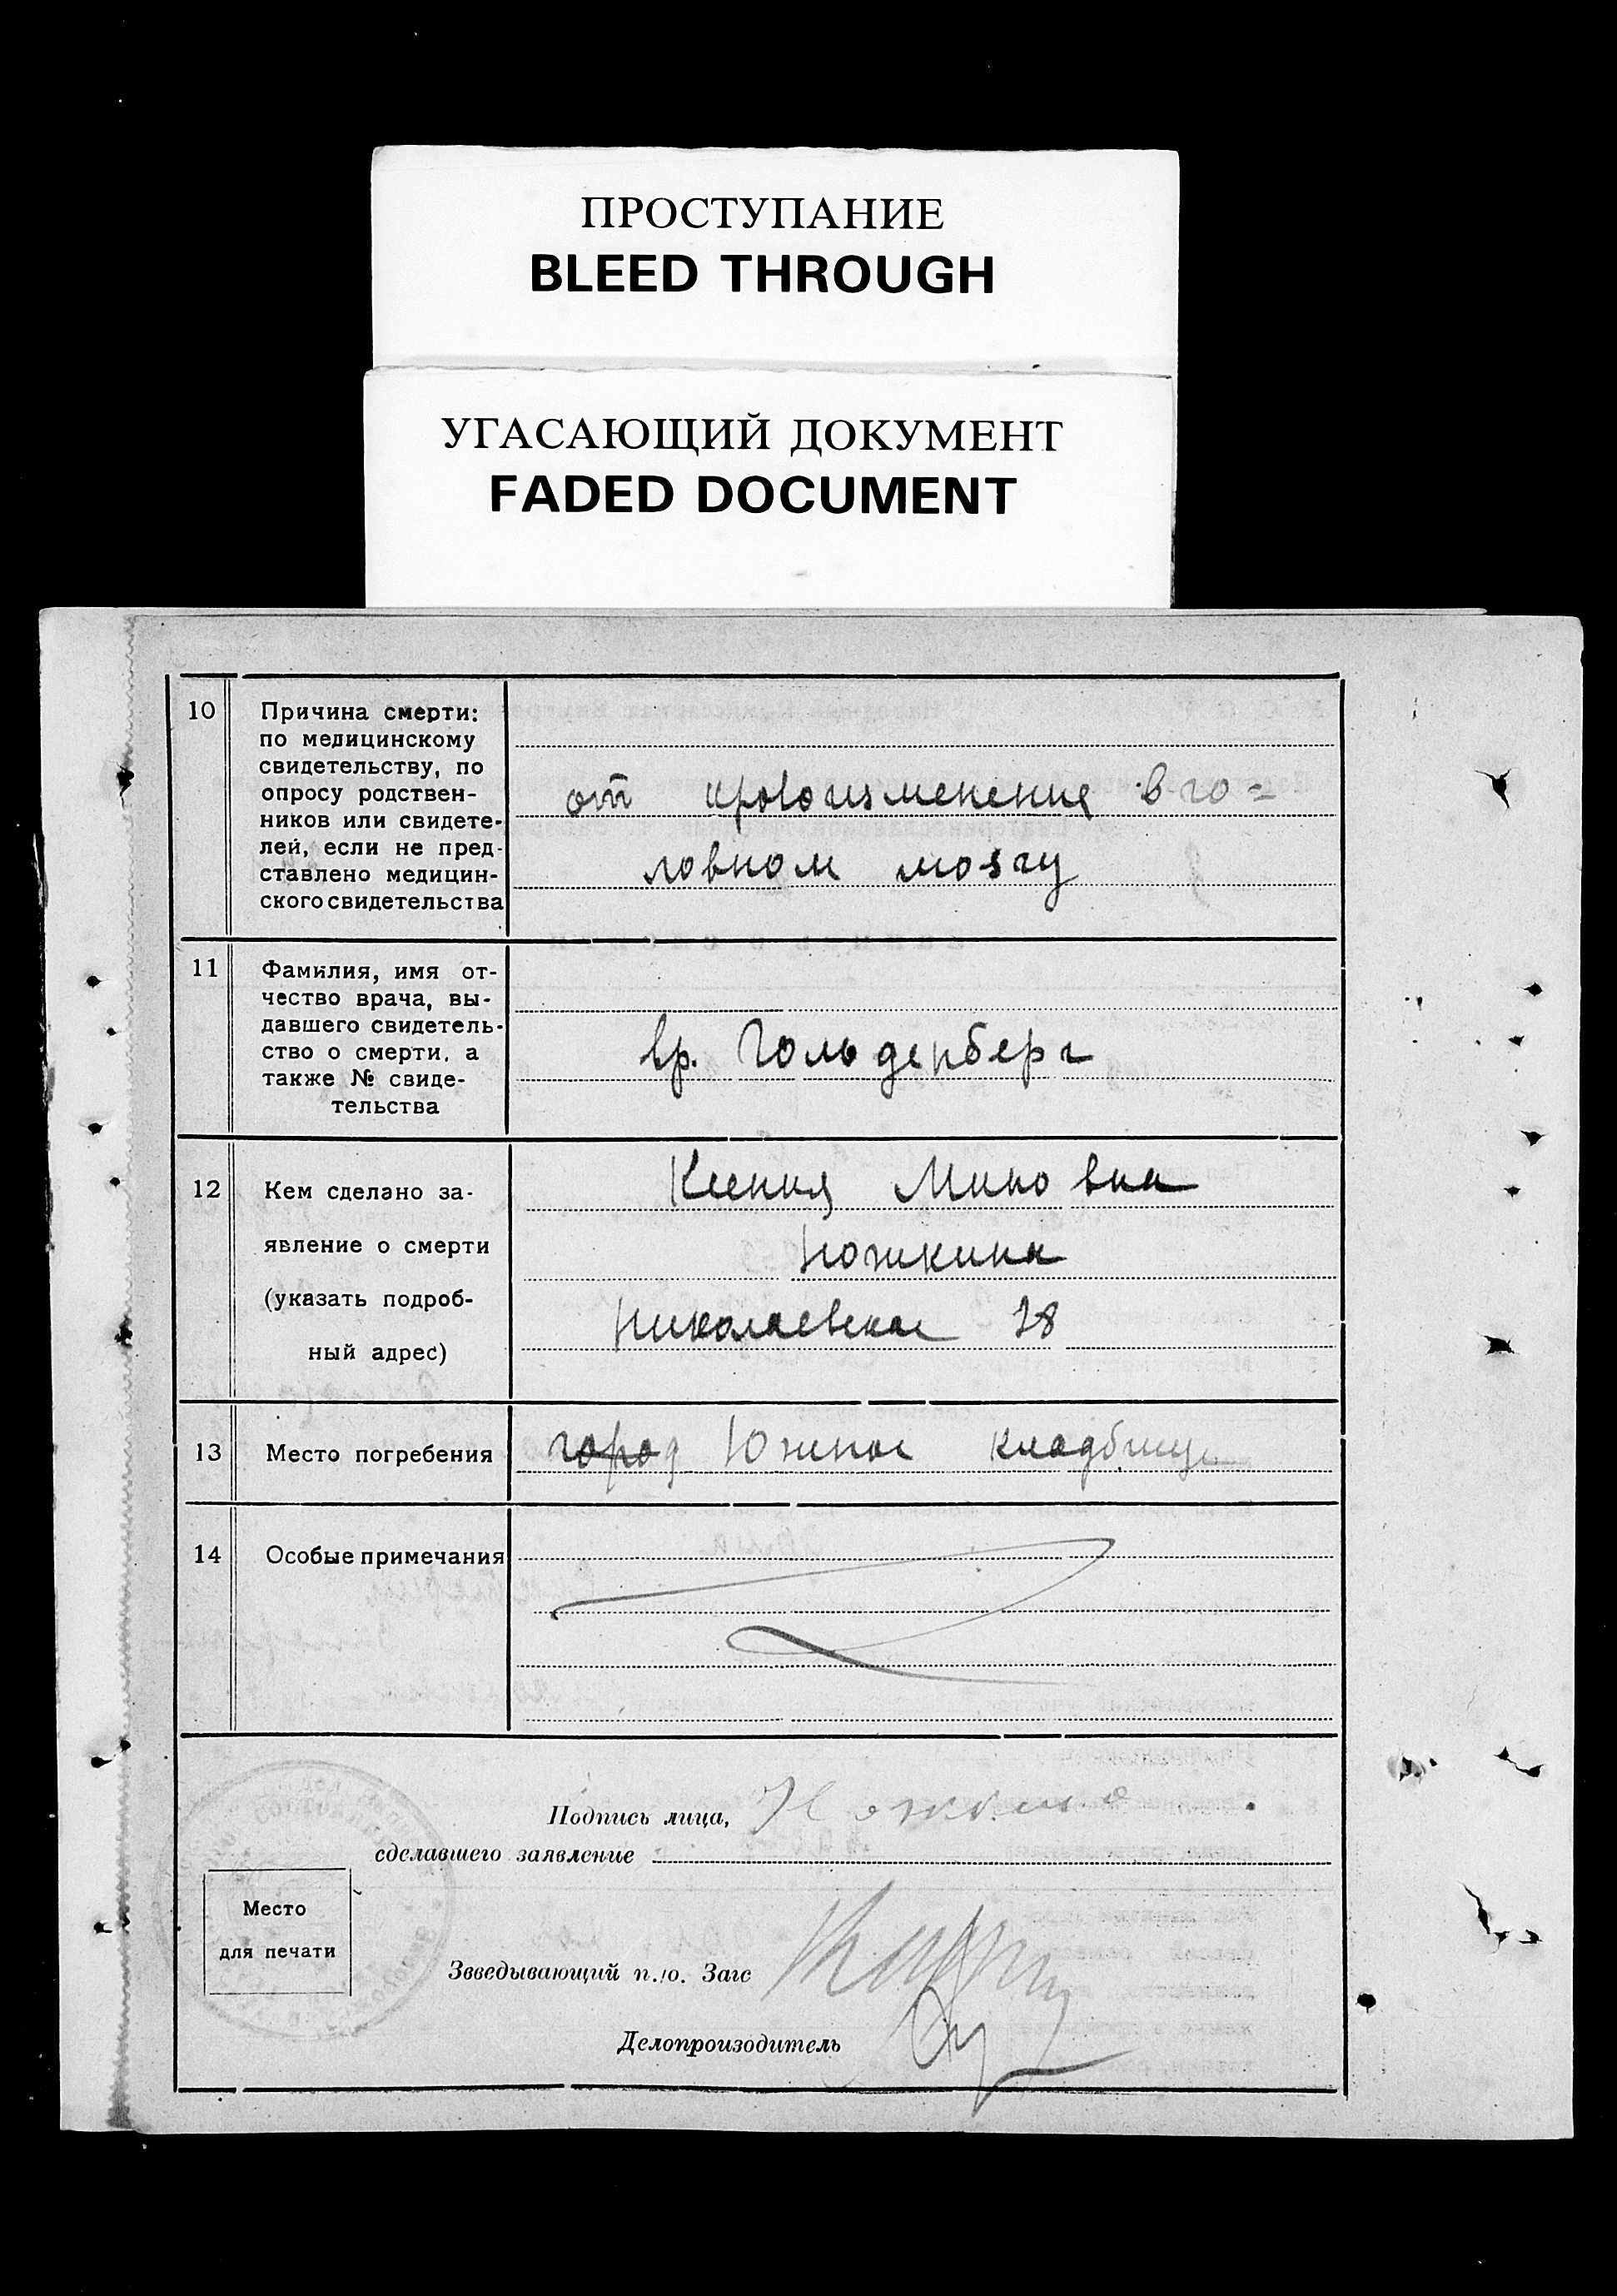 ПРОСТУПАНИЕ
BLEED THROUGH
УГАСАЮЩИЙ ДОКУМЕНТ
FADED DOCUMENT
10
Причина смерти:
по медицинскому
свидетельству, по
опросу родствен-
ников или свидете-
лей, если не пред-
ставлено медицин-
ского свидетельства
от кровоизменение в го=
ловном мозгу
11
Фамилия, имя от-
чество врача, вы-
давшего свидетель-
ство о смерти, а
также № свиде-
тельства
вр. Гольденберг
12
Кем сделано за-
явление о смерти
(указать подроб-
ный адрес)
Ксения Миновна
Ножкина
Николаевская 28
13
Место погребения
город Южное кладбище
14
Особые примечания
Подпись лица,
сделавшего заявление
Ножкина
Место
для печати
Звведывающий п./о. Загс
Делопроизводитель